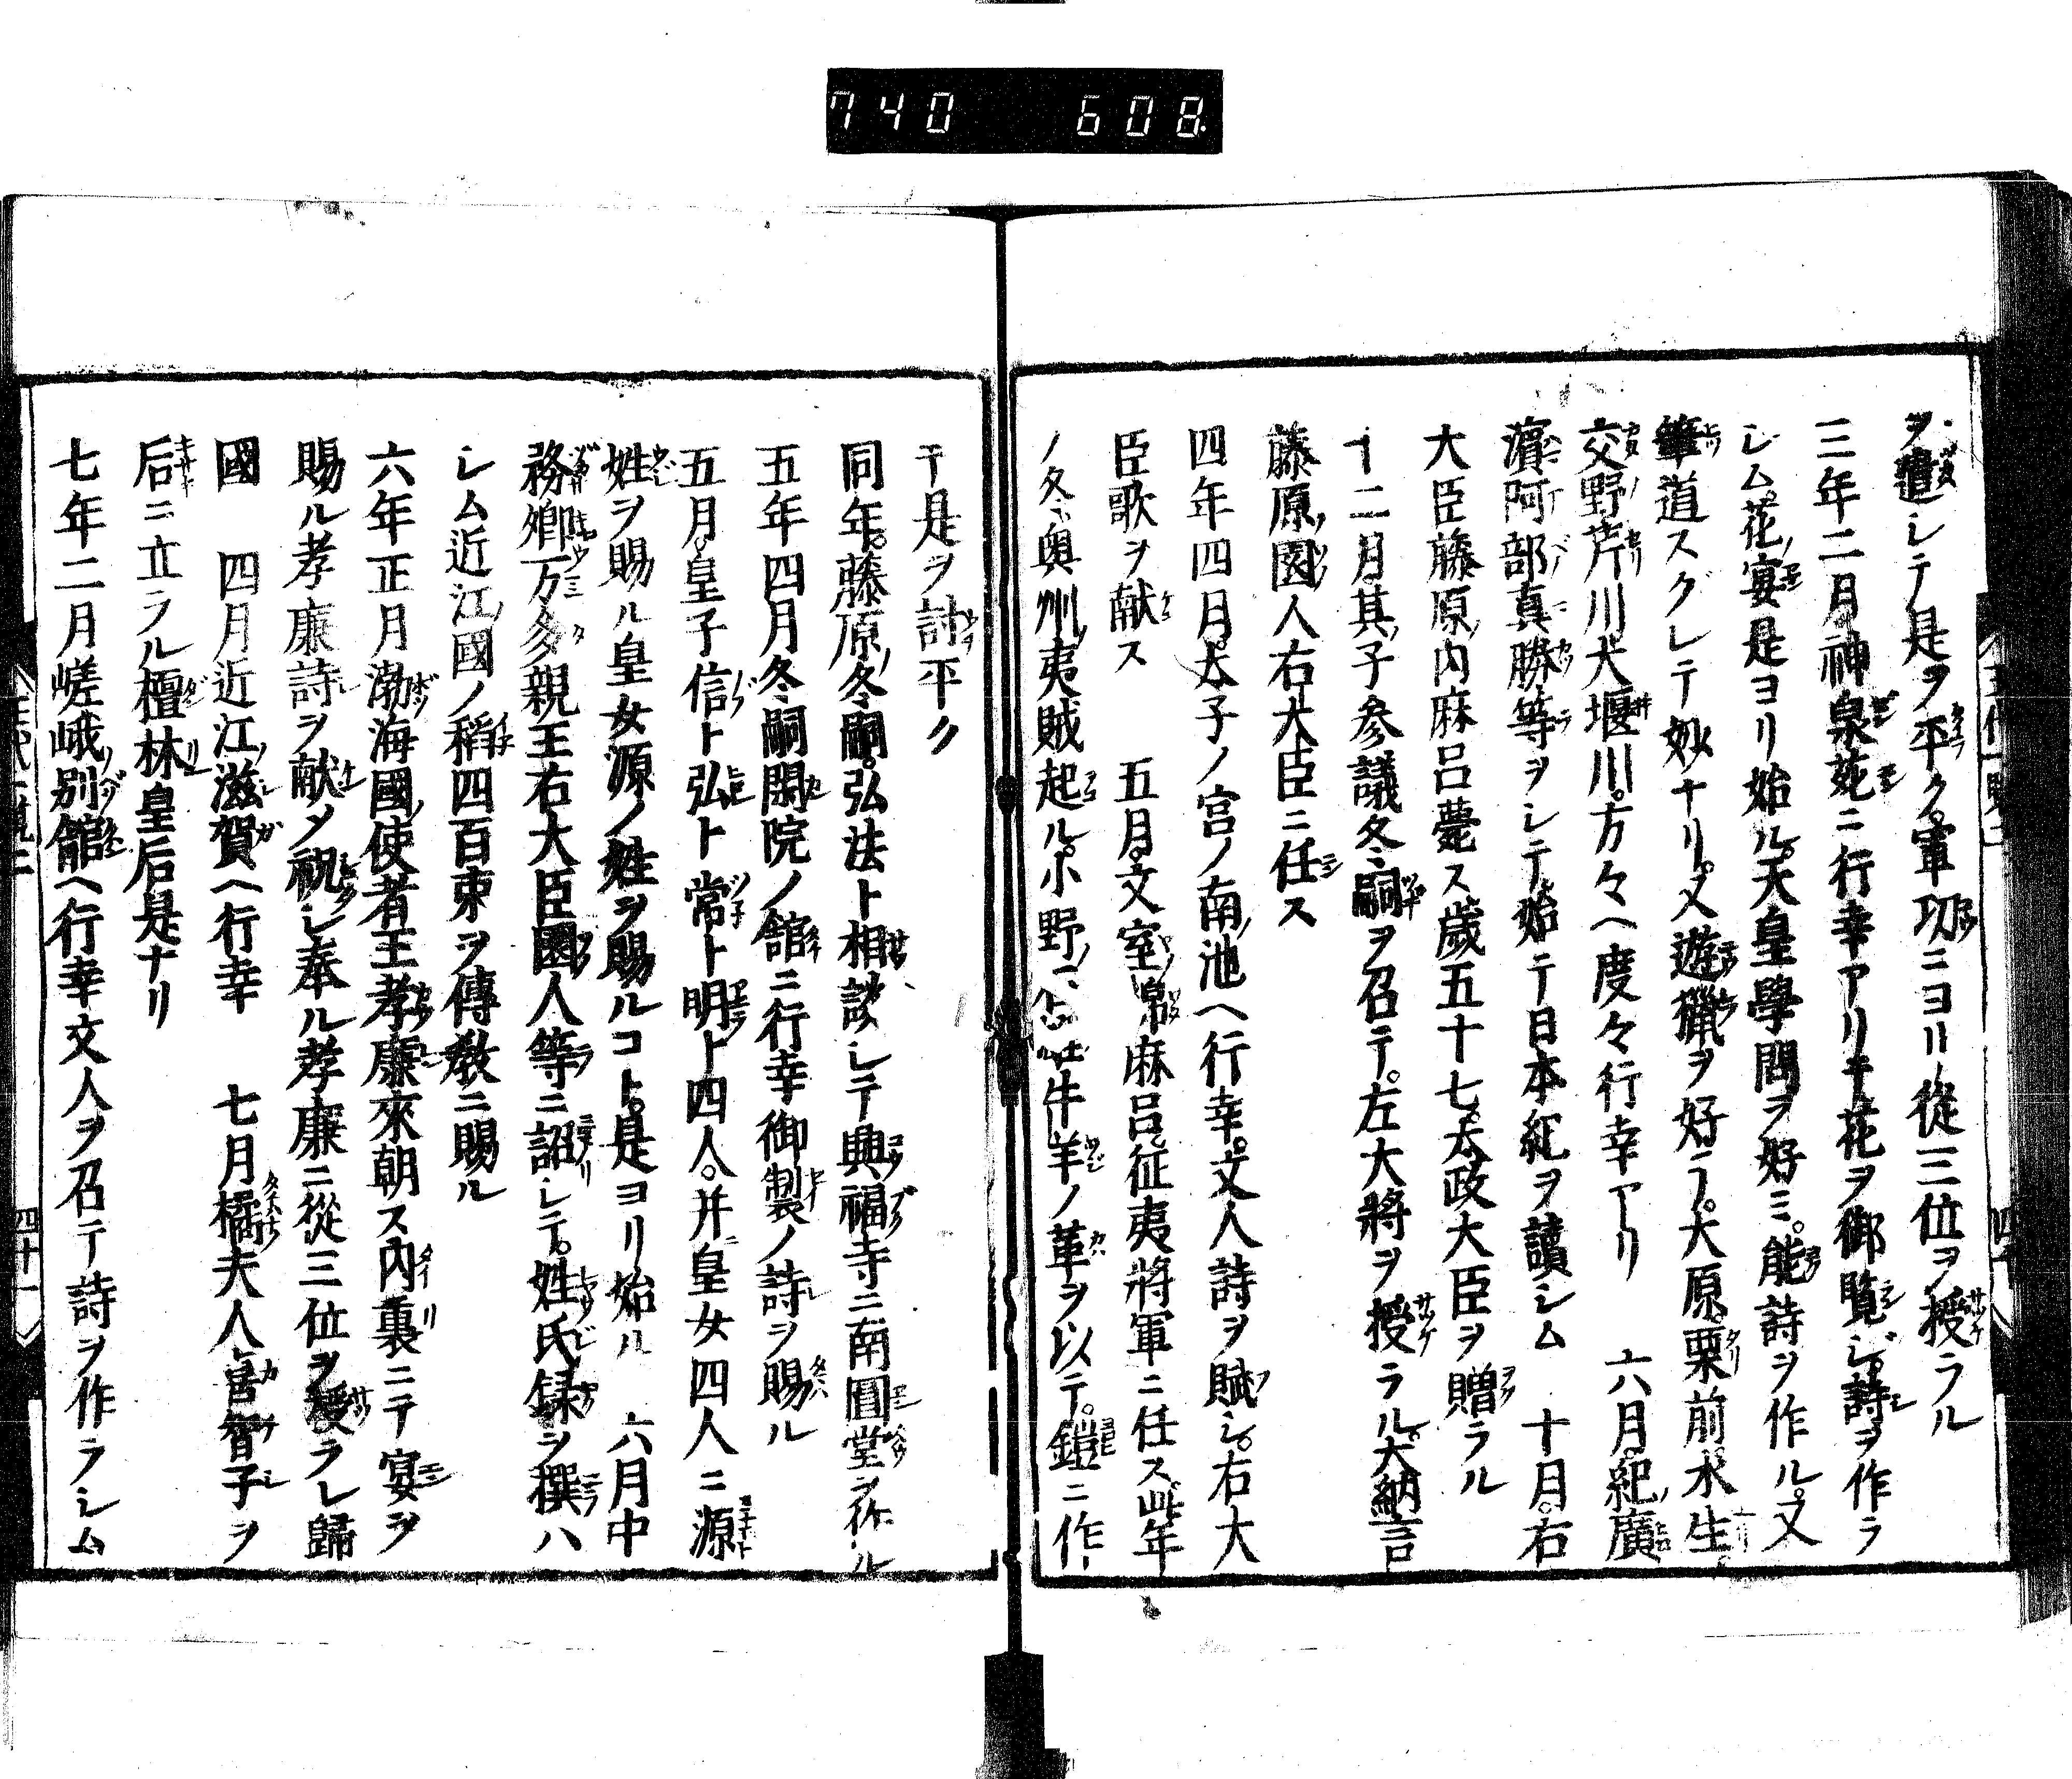 740 608
ヲ遣シテ是ヲ平ク軍功ニヨリ從三位ヲ授ラル
三年二月神泉苑ニ行幸アリテ花ヲ御覧シ詩ヲ作ラ
シム花宴是ヨリ始ル天皇學問ヲ好ミ能詩ヲ作ル又
筆道スグレテ妙ナリ又遊獵ヲ好ラ大原栗前水生
交野芹川大堰川方々ヘ度々行幸アリ 六月紀廣
濱阿部真勝等ヲシテ始テ日本紀ヲ讀シム 十月右
大臣藤原内麻呂薨ス歳五十七太政大臣ヲ贈ラル
十二月其子参議冬嗣ヲ召テ左大將ヲ授ラル大納言
藤原園人右大臣ニ任ス
四年四月太子ノ宮ノ南池ヘ行幸文人詩ヲ賦シ右大
臣歌ヲ献ス 五月文室綿麻呂征夷將軍ニ任ス此年
ノ冬奥州夷賊起ル小野 牛羊ノ革ヲ以テ鎧ニ作
テ是ヲ討平ク
同年藤原冬嗣弘法ト相談シテ興福寺ニ南圓堂ヲ作ル
五年四月冬嗣閑院ノ舘ニ行幸御製ノ詩ヲ賜ル
五月皇子信ト弘ト常ト明ト四人并皇女四人ニ源
姓ヲ賜ル皇女源ノ姓ヲ賜ルコト是ヨリ始ル 六月中
務卿万多親王右大臣園人等ニ詔シテ姓氏録ヲ撰ハ
シム近江國ノ稻四百束ヲ傳教ニ賜ル
六年正月渤海國使者王孝廉來朝ス内裏ニテ宴ヲ
賜ル孝廉詩ヲ献メ祝シ奉ル孝廉ニ從三位ヲ授ラレ歸
國 四月近江滋賀ヘ行幸 七月橘夫人喜智子ヲ
后ニ立ラル檀林皇后是ナリ
七年二月嵯峨別舘ヘ行幸文人ヲ召テ詩ヲ作ラシム
四十一